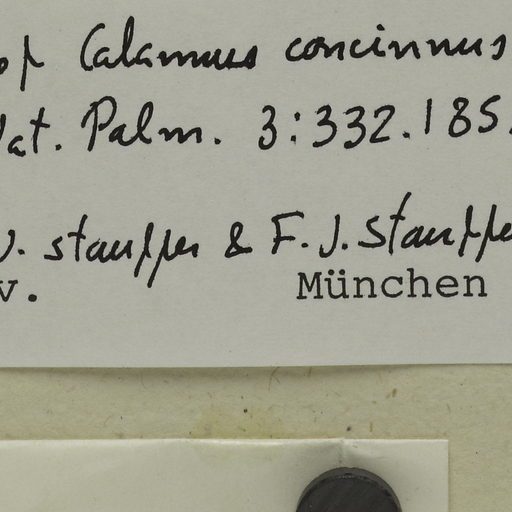 of Calamus concinnus
Nat. Palm. 3:332.185
J. Stauffer & F.J. Stauffe
v. München